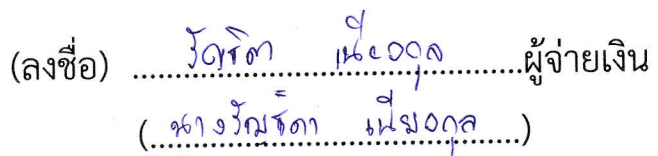 (ลงชื่อ) รัญธิดา เนียอกุล ผู้จ่ายเงิน
(นางรัญธิดา เนียอกุล)